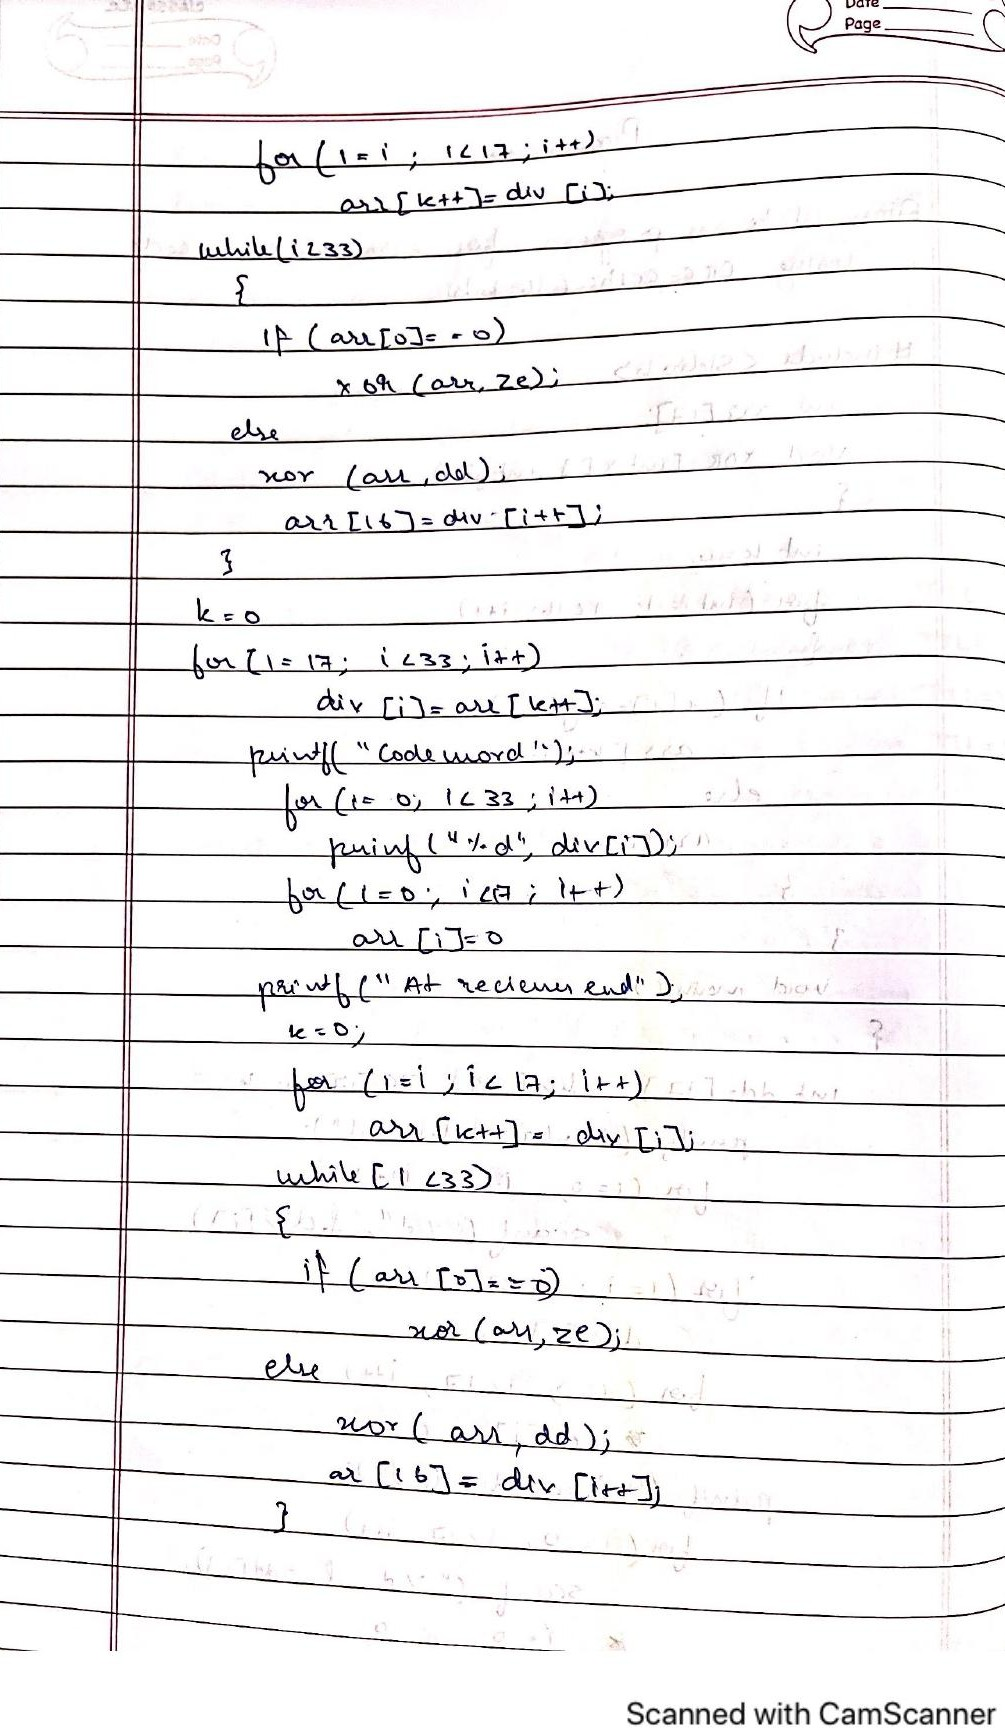 Date
Page
for (i = i ; i < 17 ; i++)
arr [k++] = div [i];
while (i < 33)
{
if (arr [0] == 0)
xor (arr, ze);
else
xor (arr, dd);
arr [16] = div [i++];
}
k = 0
for [i = 17; i < 33; i++)
div [i] = arr [k++];
printf( "Code word");
for (i = 0; i < 33 ; i++)
prinf ("%d", div[i]);
for (i = 0; i < 17 ; i++)
arr [i] = 0
printf (" At reciever end" );
k = 0;
for (i = i ; i < 17; i++)
arr [k++] = div [i];
while [i < 33)
{
if (arr [0] == 0)
xor (arr, ze);
else
xor ( arr, dd );
ar [16] = div [i++];
}
Scanned with CamScanner